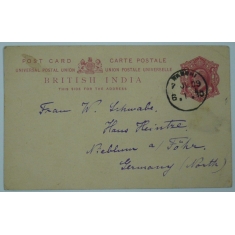 POST CARD CARTE POSTALE
UNIVERSAL POSTAL UNION UNION POSTALE UNIVERSELLE
BRITISH INDIA
THIS SIDE FOR THE ADDRESS.
Frau W. Schwabe.
Haus Heintze
Neblum a/Föhr.
Germany (North)